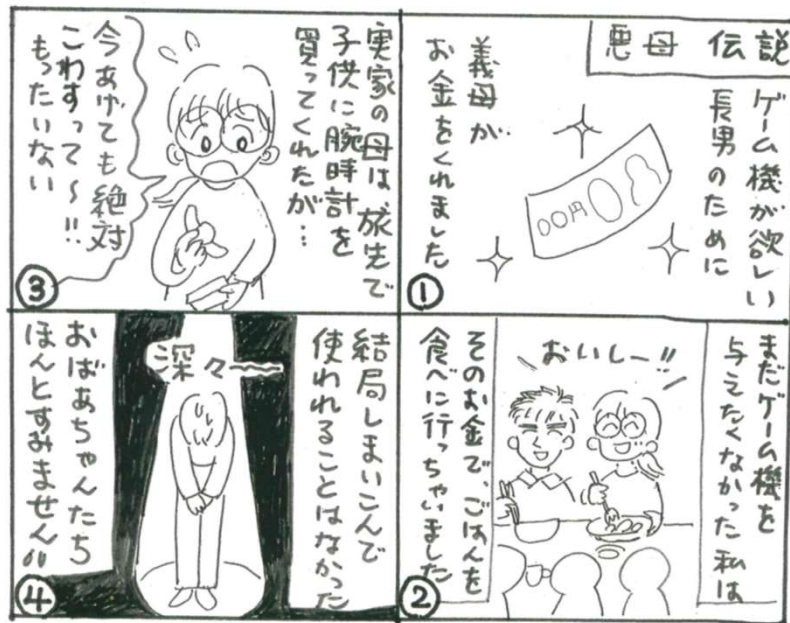 悪母 伝説
ゲーム機が欲しい
長男のために
義母が
お金をくれました
00円
①
まだゲーム機を
与えたくなかった私は
おいしー!!
そのお金で、ごはんを
食べに行っちゃいました
②
実家の母は、旅先で
子供に腕時計を
買ってくれたが…
今あげても絶対
こわすって〜!!
もったいない
③
結局しまいこんで
使われることはなかった
深々〜
おばあちゃんたち
ほんとすみません!!
④